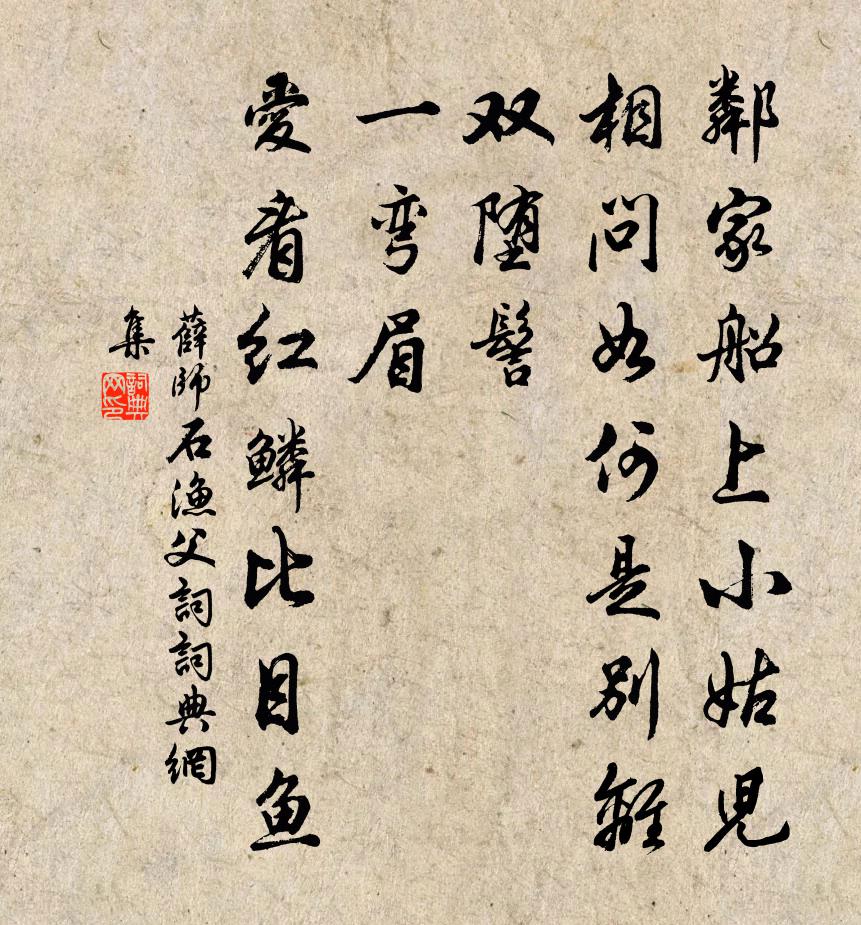 鄰家船上小姑兒
相問如何是別離
双堕髻
一弯眉
愛看红鱗比目魚
薛師石漁父詞詞典網
集
詞典网印